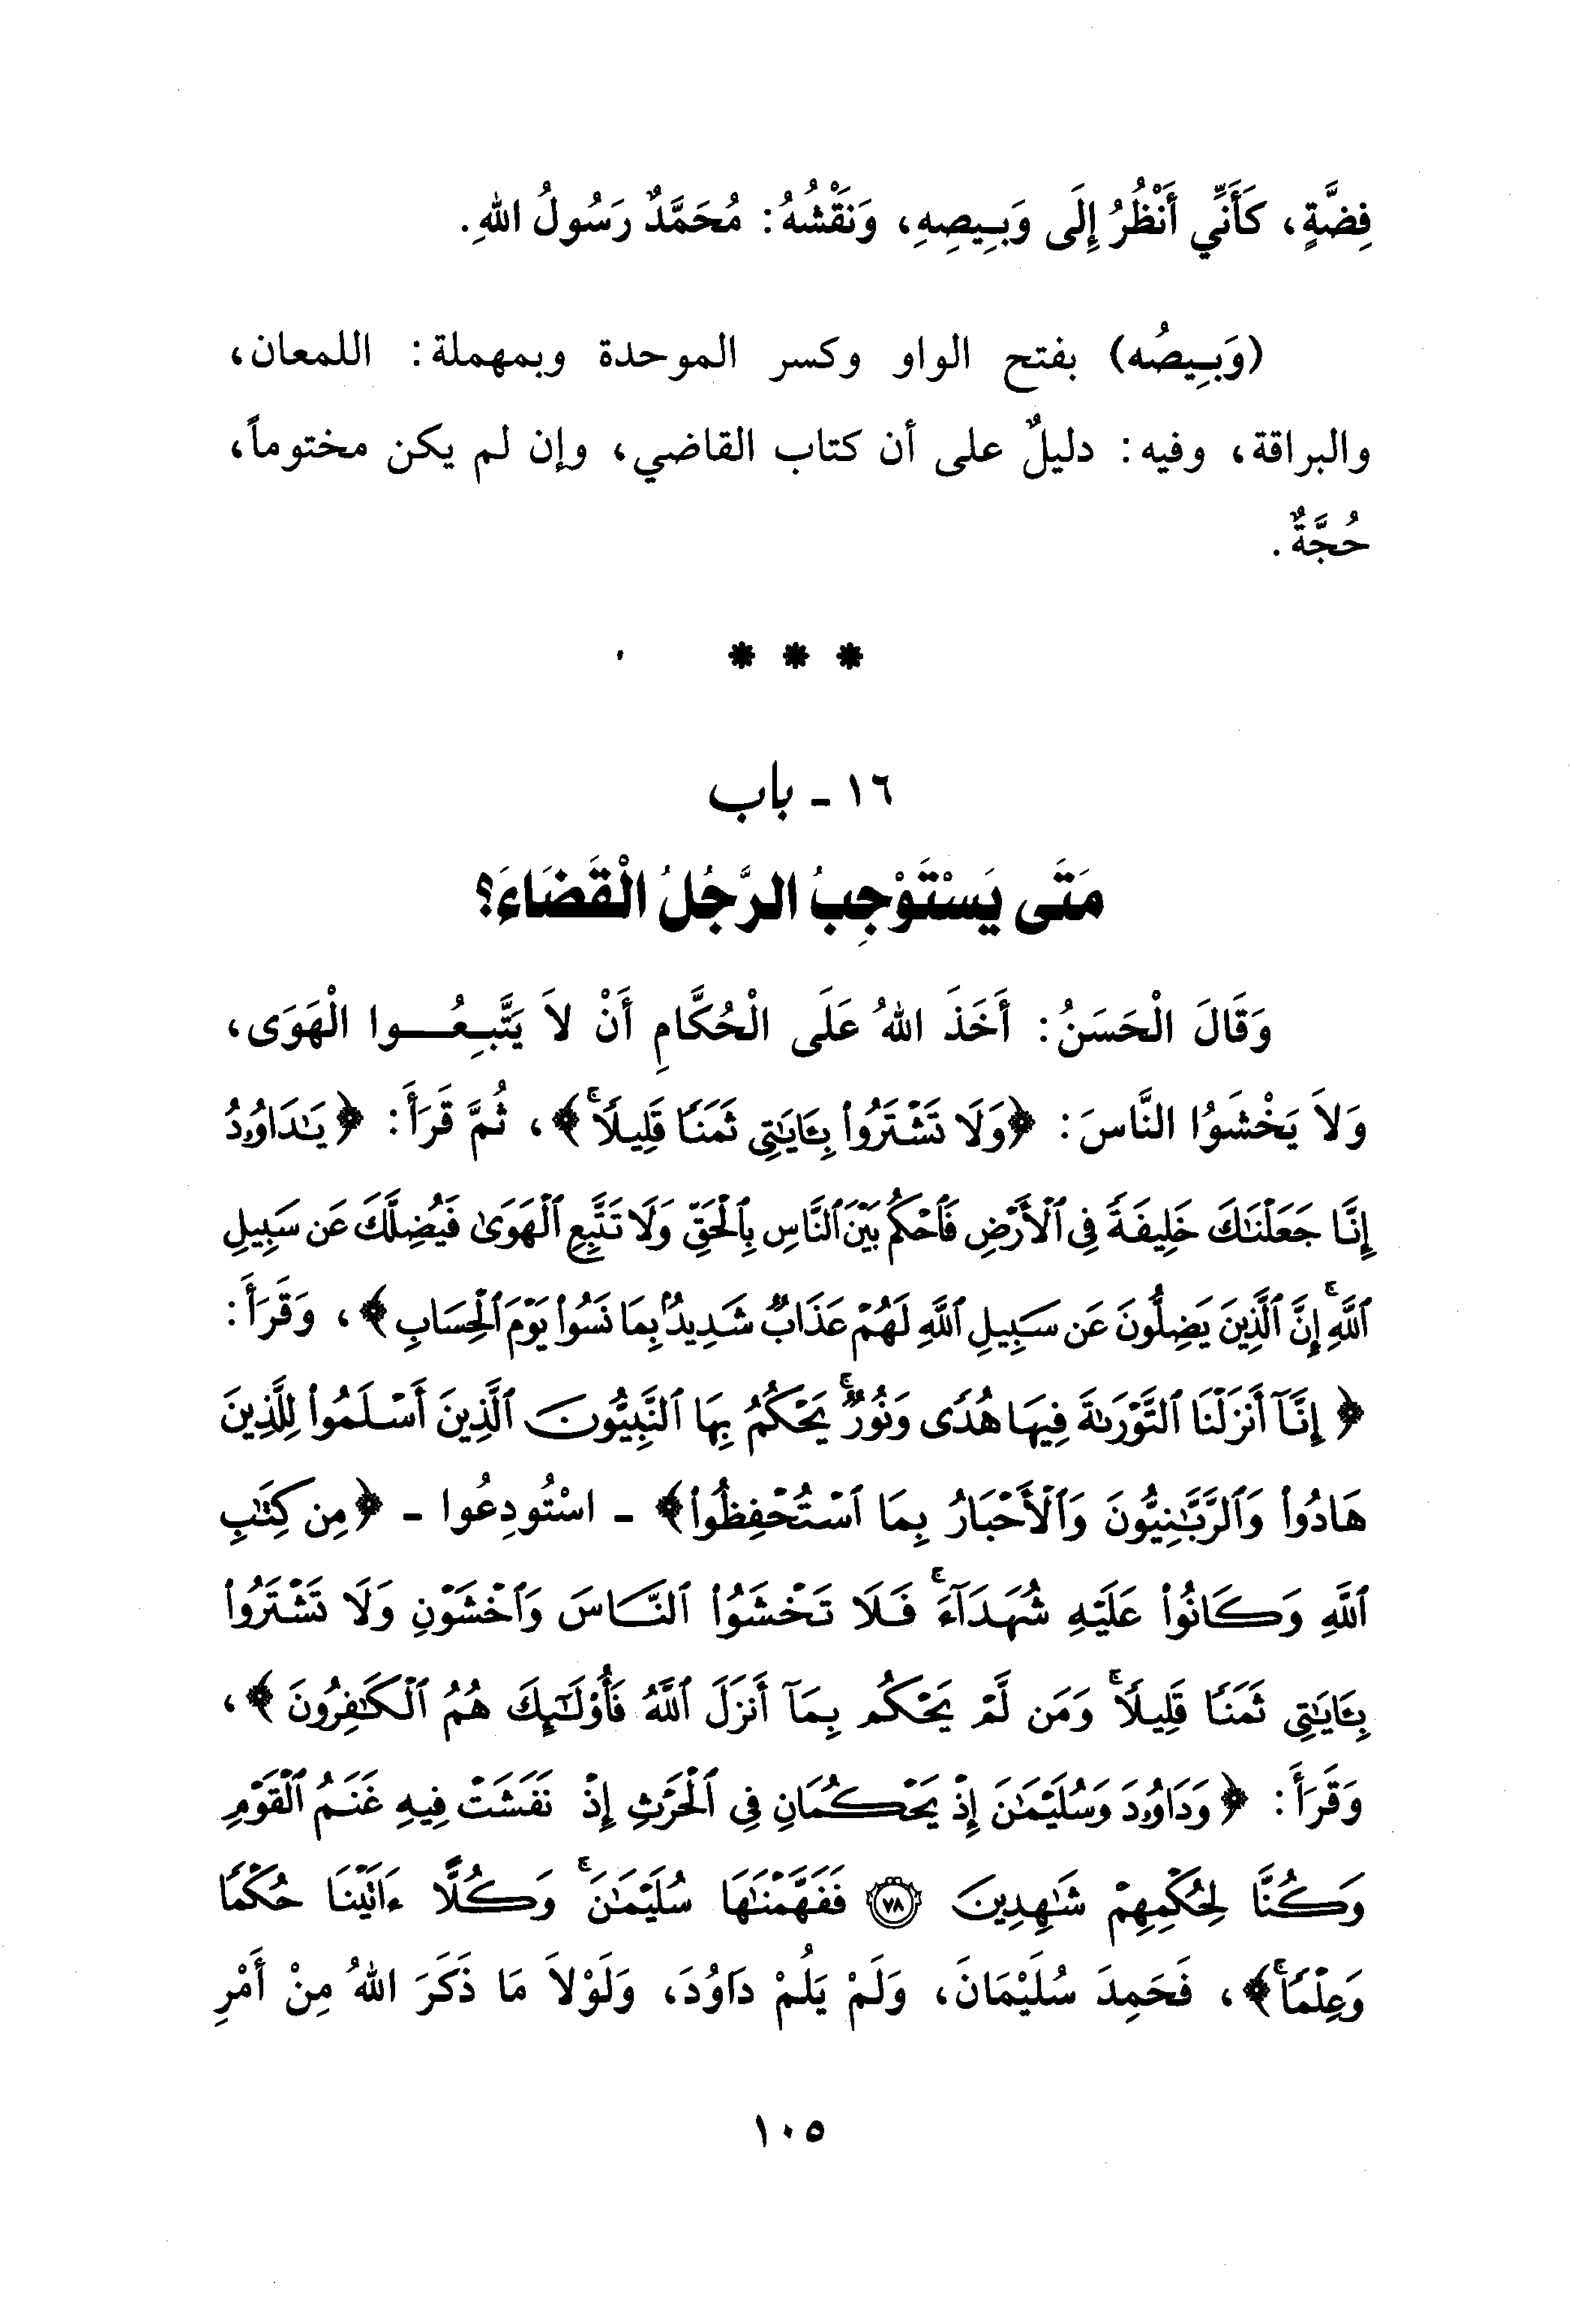 فِضَّةٍ، كَأَنِّي أَنْظُرُ إِلَى وَبِيصِهِ، وَنَقْشُهُ: مُحَمَّدٌ رَسُولُ اللهِ.
(وَبِيصُه) بفتح الواو وكسر الموحدة وبمهملة: اللمعان،
والبراقة، وفيه: دليلٌ على أن كتاب القاضي، وإن لم يكن مختوماً،
حُجَّةٌ.
* * *
١٦ - باب
مَتَى يَسْتَوْجِبُ الرَّجُلُ الْقَضَاءَ؟
وَقَالَ الْحَسَنُ: أَخَذَ اللهُ عَلَى الْحُكَّامِ أَنْ لاَ يَتَّبِعُوا الْهَوَى،
وَلاَ يَخْشَوُا النَّاسَ: ﴿وَلَا تَشْتَرُوا۟ بِـَٔايَـٰتِى ثَمَنًا قَلِيلًا ۚ﴾، ثُمَّ قَرَأَ: ﴿يَـٰدَاوُۥدُ
إِنَّا جَعَلْنَـٰكَ خَلِيفَةً فِى ٱلْأَرْضِ فَٱحْكُم بَيْنَ ٱلنَّاسِ بِٱلْحَقِّ وَلَا تَتَّبِعِ ٱلْهَوَىٰ فَيُضِلَّكَ عَن سَبِيلِ
ٱللَّهِ ۚ إِنَّ ٱلَّذِينَ يَضِلُّونَ عَن سَبِيلِ ٱللَّهِ لَهُمْ عَذَابٌ شَدِيدٌۢ بِمَا نَسُوا۟ يَوْمَ ٱلْحِسَابِ﴾، وَقَرَأَ:
﴿إِنَّآ أَنزَلْنَا ٱلتَّوْرَىٰةَ فِيهَا هُدًى وَنُورٌ ۚ يَحْكُمُ بِهَا ٱلنَّبِيُّونَ ٱلَّذِينَ أَسْلَمُوا۟ لِلَّذِينَ
هَادُوا۟ وَٱلرَّبَّـٰنِيُّونَ وَٱلْأَحْبَارُ بِمَا ٱسْتُحْفِظُوا۟﴾ - اسْتُودِعُوا - ﴿مِن كِتَـٰبِ
ٱللَّهِ وَكَانُوا۟ عَلَيْهِ شُهَدَآءَ ۚ فَلَا تَخْشَوُا۟ ٱلنَّاسَ وَٱخْشَوْنِ وَلَا تَشْتَرُوا۟
بِـَٔايَـٰتِى ثَمَنًا قَلِيلًا ۚ وَمَن لَّمْ يَحْكُم بِمَآ أَنزَلَ ٱللَّهُ فَأُو۟لَـٰٓئِكَ هُمُ ٱلْكَـٰفِرُونَ﴾،
وَقَرَأَ: ﴿وَدَاوُۥدَ وَسُلَيْمَـٰنَ إِذْ يَحْكُمَانِ فِى ٱلْحَرْثِ إِذْ نَفَشَتْ فِيهِ غَنَمُ ٱلْقَوْمِ
وَكُنَّا لِحُكْمِهِمْ شَـٰهِدِينَ ٧٨ فَفَهَّمْنَـٰهَا سُلَيْمَـٰنَ ۚ وَكُلًّا ءَاتَيْنَا حُكْمًا
وَعِلْمًا ۚ﴾، فَحَمِدَ سُلَيْمَانَ، وَلَمْ يَلُمْ دَاوُدَ، وَلَوْلاَ مَا ذَكَرَ اللهُ مِنْ أَمْرِ
١٠٥